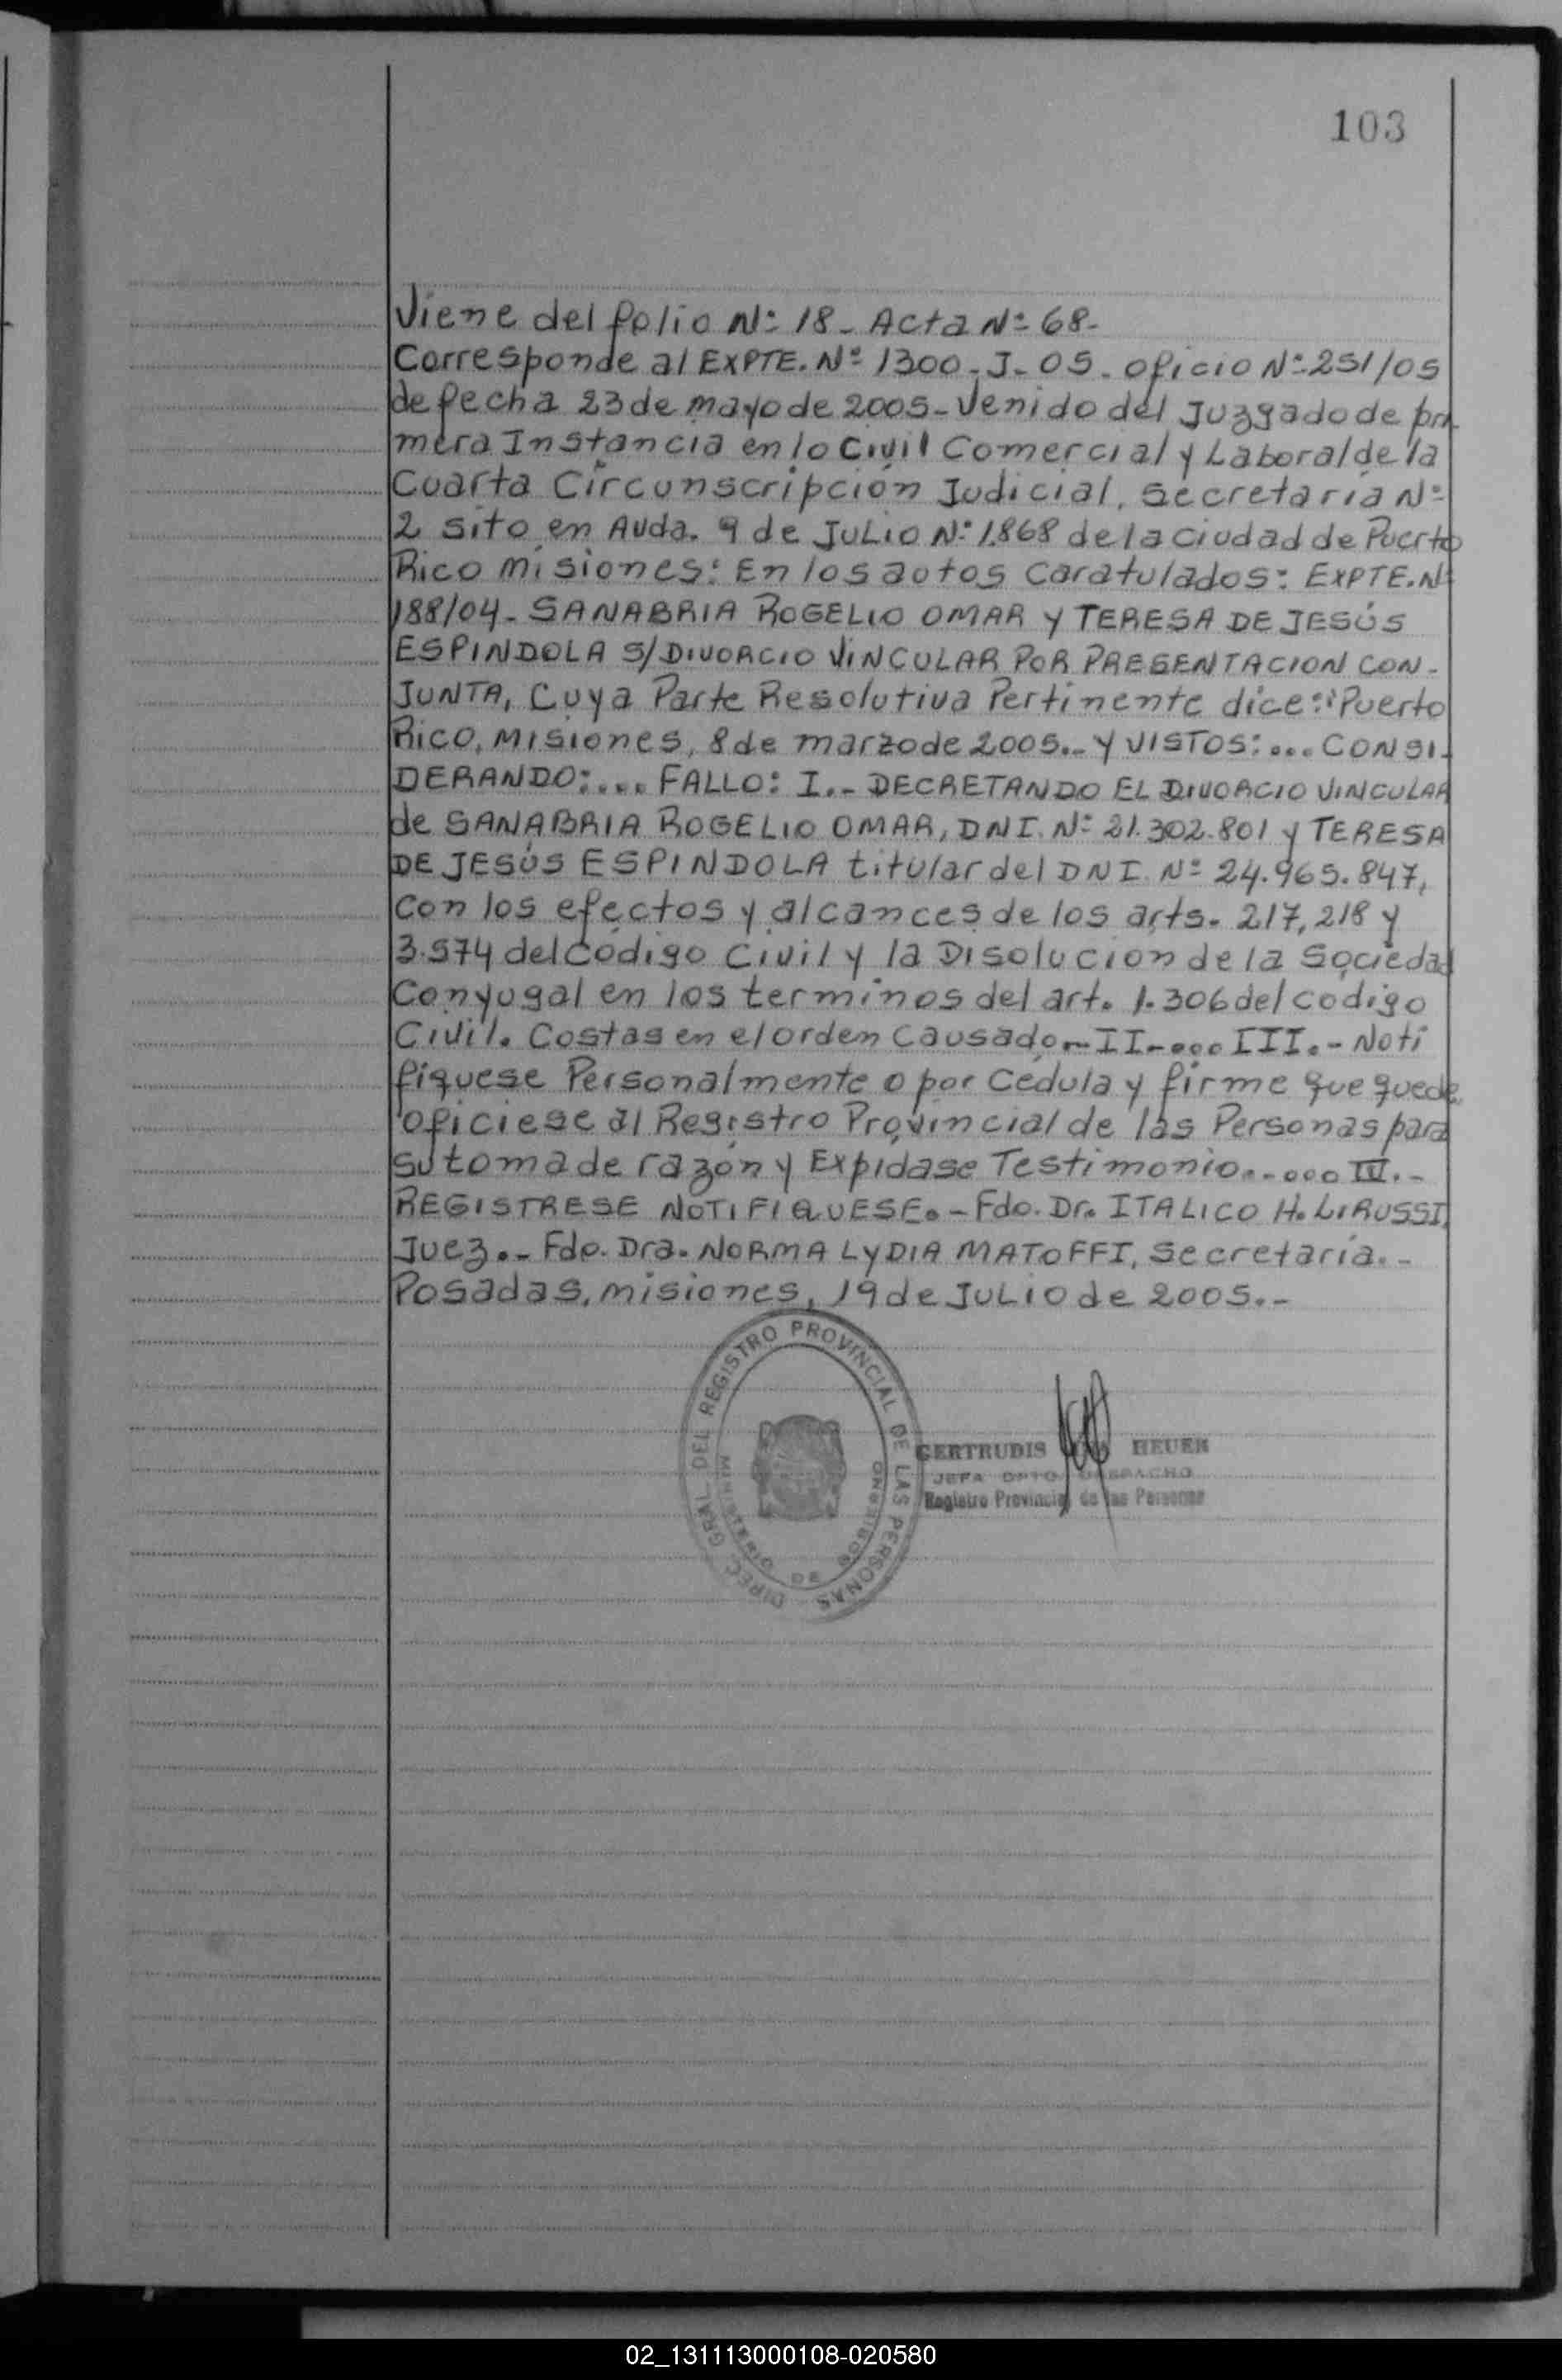 103
Viene del folio Nº 18 - Acta Nº 68-
Corresponde al EXPTE. Nº 1300-J-05. oficio Nº 251/05
de fecha 23 de mayo de 2005- Venido del Juzgado de pri
mera Instancia en lo Civil Comercial y Laboral de la
Cuarta Circunscripción Judicial, secretaría Nº
2 sito en Avda. 9 de JULIO Nº 1.868 de la ciudad de Puerto
Rico misiones: En los autos Caratulados: EXPTE. Nº
188/04- SANABRIA ROGELIO OMAR y TERESA DE JESÚS
ESPINDOLA S/DIVORCIO VINCULAR POR PRESENTACION CON-
JUNTA, Cuya Parte Resolutiva Pertinente dice: "Puerto
Rico, Misiones, 8 de marzo de 2005.- y VISTOS:... CONSI-
DERANDO:.... FALLO: I.- DECRETANDO EL DIVORCIO VINCULAR
de SANABRIA ROGELIO OMAR, DNI. Nº 21.302.801 y TERESA
DE JESÚS ESPINDOLA titular del DNI Nº 24.965.847,
Con los efectos y alcances de los arts. 217, 218 y
3.574 del Código Civil y la Disolucion de la Sociedad
Conyugal en los terminos del art. 1.306 del codigo
Civil. Costas en el orden Causado.- II-... III.- Noti
fiquese Personalmente o por Cedula y firme que quede
oficiese al Registro Provincial de las Personas para
su toma de razón y Expidase Testimonio..-... IV.-
REGISTRESE NOTIFIQUESE.- Fdo. Dr. ITALICO H. LIRUSSI,
Juez.- Fdo. Dra. NORMA LYDIA MATOFFI, Secretaría.-
Posadas, misiones, 19 de JULIO de 2005.-
DIREC. GRAL. DEL REGISTRO PROVINCIAL DE LAS PERSONAS
MINISTERIO DE GOBIERNO
GERTRUDIS HEUER
JEFA DPTO. DESPACHO
Registro Provincial de las Personas
02_131113000108-020580